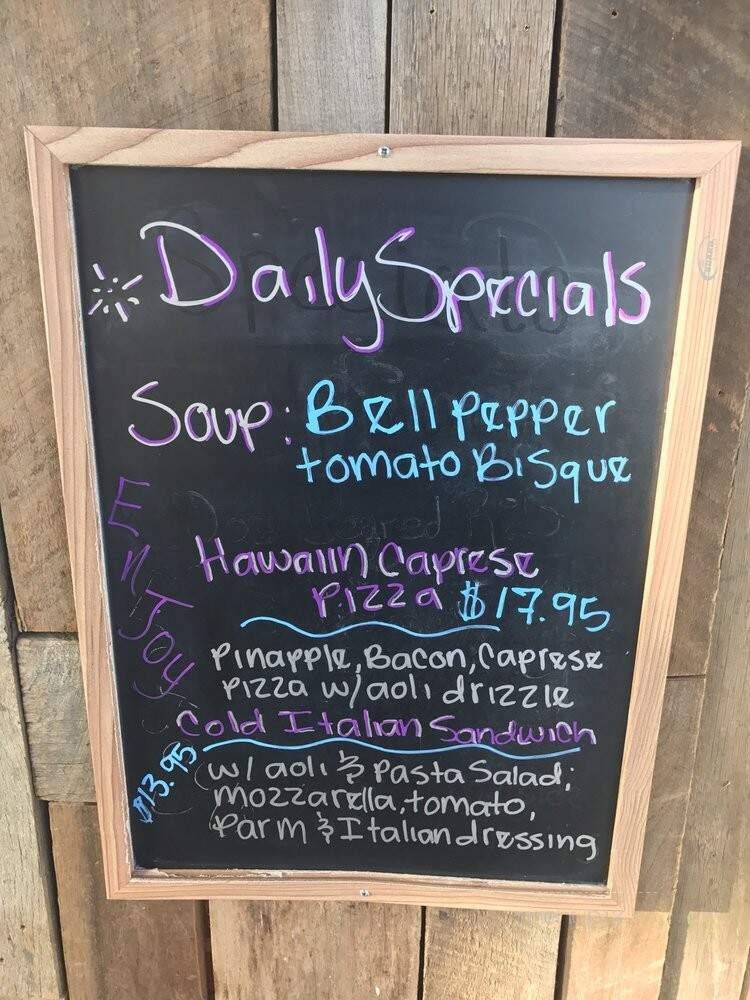 Daily Specials
Soup: Bell Pepper
tomato Bisque
Enjoy
Hawaiin Caprese
Pizza $17.95
Pinapple, Bacon, Caprese
Pizza w/ aoli drizzle
Cold Italian Sandwich
$13.95
w/ aoli & Pasta Salad;
mozzarella, tomato,
Parm & Italian dressing